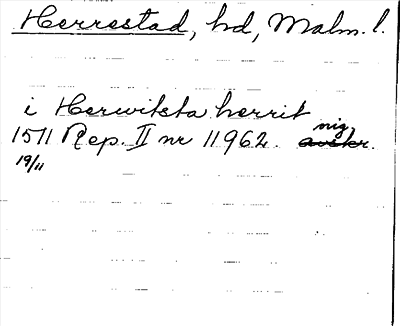 Herrestad, hd, Malm. l.
i Herwitsta herrit
1511 Rep. II nr 11962. nig avskr.
19/11